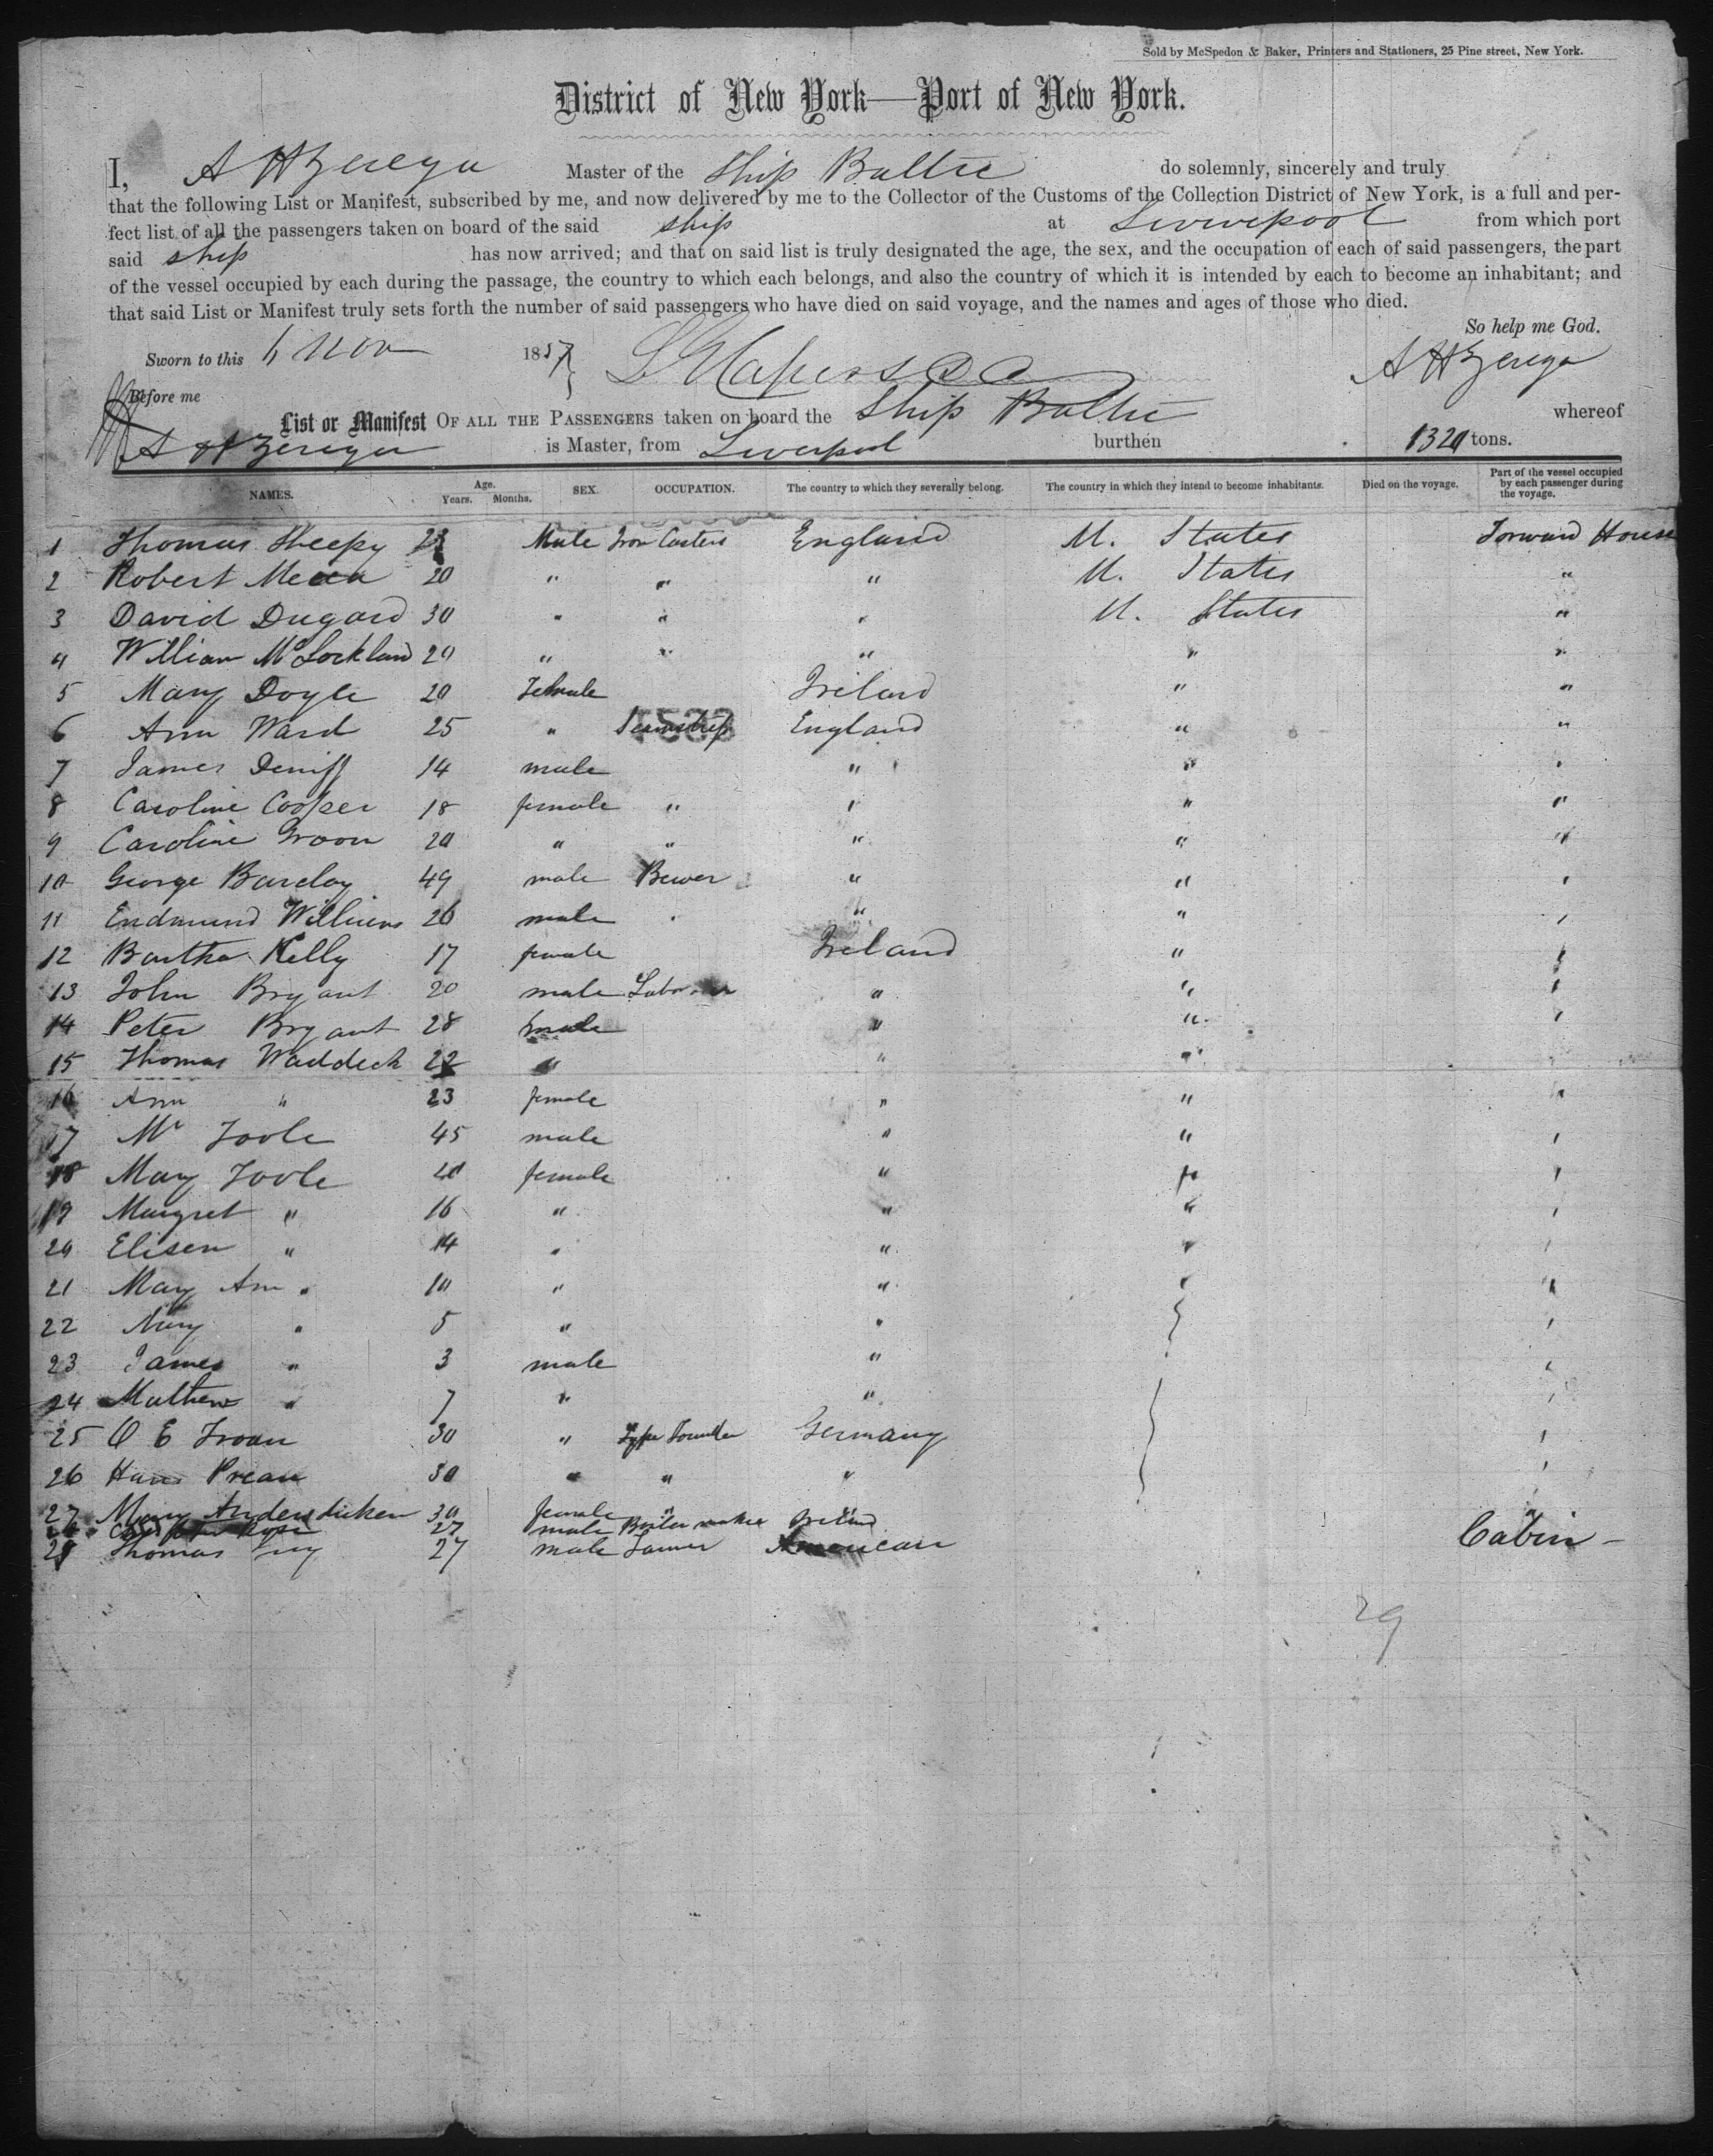 Sold by McSpedon & Baker, Printers and Stationers, 25 Pine street, New York.
District of New York—Port of New York.
I, A H Zerega Master of the Ship Baltic do solemnly, sincerely and truly
that the following List or Manifest, subscribed by me, and now delivered by me to the Collector of the Customs of the Collection District of New York, is a full and per-
fect list of all the passengers taken on board of the said ship at Liverpool from which port
said ship has now arrived; and that on said list is truly designated the age, the sex, and the occupation of each of said passengers, the part
of the vessel occupied by each during the passage, the country to which each belongs, and also the country of which it is intended by each to become an inhabitant; and
that said List or Manifest truly sets forth the number of said passengers who have died on said voyage, and the names and ages of those who died.
So help me God.
Sworn to this Nov 1857 A H Zerega
Before me
List or Manifest OF ALL THE PASSENGERS taken on board the Ship Baltic whereof
A H Zerega is Master, from Liverpool burthen 1320 tons.
NAMES. Age. Years. Months. SEX. OCCUPATION. The country to which they severally belong. The country in which they intend to become inhabitants. Died on the voyage. Part of the vessel occupied by each passenger during the voyage.
1 Thomas Sheepy Male Iron Casters England U. States Forward House
2 Robert 20 " " " U. States "
3 David Dugard 30 " " " U. States "
4 William McLockland 20 " " " " "
5 Mary Doyle 20 Female Ireland " "
6 Ann Ward 25 " England " "
7 James Deniff 14 male " " "
8 Caroline Cooper 18 female " " " "
9 Caroline Groom 20 " " " " "
10 George Barclay 49 male Bewer " " "
11 Endmund Williams 26 male " " "
12 Bartha Kelly 17 female Ireland " "
13 John Bryant 20 male " " "
14 Peter Bryant 28 male " " "
15 Thomas Waddeck 22 " " " "
16 Ann " 23 female " " "
17 Mr Toole 45 male " " "
18 Mary Toole female " " "
19 Margret " 16 " " " "
20 Elisen " 14 " " " "
21 Mary Ann " 10 " " " "
22 " 5 " " "
23 James " 3 male " "
24 Mathew " 7 " " "
25 O E 30 " Type Founder Germany "
26 Hans Prean 30 " " " "
27 Mary 30 female "
27 male Boiler maker Ireland
Thomas 27 male American Cabin
29